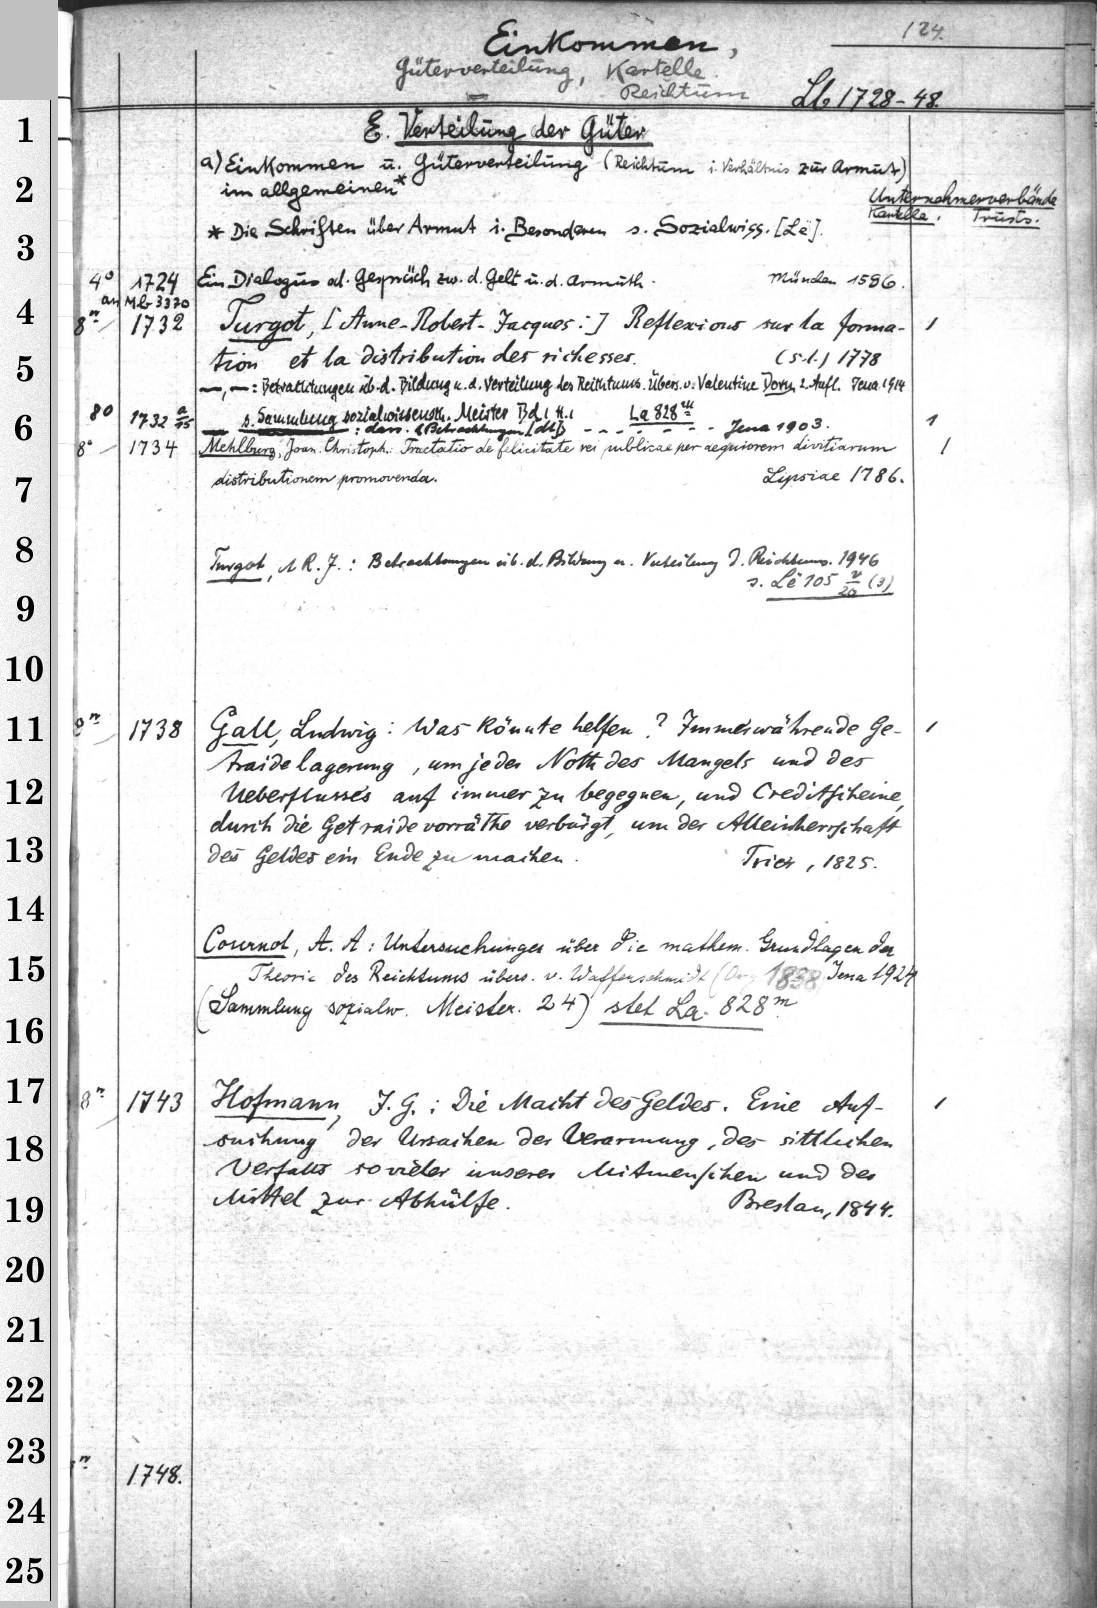 124.
Einkommen,
Güterverteilung, Kartelle.
Reichtum
Lb 1728-48.
E. Verteilung der Güter
a) Einkommen u. Güterverteilung (Reichtum i. Verhältnis zur Armut)
im allgemeinen*
Unternehmerverbände
Kartelle. Trusts.
* Die Schriften über Armut i. Besonderen s. Sozialwiss. [Lë].
4° 1724 Ein Dialogus od. Gespräch zw. d. Gelt u. d. Armuth. München 1586.
an Mb 3370
8° 1732 Turgot, [Anne-Robert-Jacques:] Reflexions sur la forma- 1
tion et la distribution des richesses. (s.l.) 1778
—,—: Betrachtungen üb. d. Bildung u. d. Verteilung des Reichtums. Übers. v. Valentine Dorn 2. Aufl. Jena 1914
s. Sammlung sozialwissensch. Meister Bd. 1 La 828 m
80 1732 a/75 — : dass. (Betrachtungen [dt]) - - - - - - Jena 1903. 1
8° 1734 Mehlburg, Joan. Christoph.: Tractatio de felicitate rei publicae per aequiorem divitiarum 1
distributionem promovenda. Lipsiae 1786.
Turgot, A R. J.: Betrachtungen üb. d. Bildung u. Verteilung d. Reichtums. 1946
s. Lë 105 v/20 (3)
8° 1738 Gall, Ludwig: Was könnte helfen? Immerwährende Ge- 1
traidelagerung, um jeder Noth des Mangels und des
Ueberflusses auf immer zu begegnen, und Creditscheine,
durch die Getraidevorräthe verbürgt, um der Alleinherrschaft
des Geldes ein Ende zu machen. Trier, 1825.
Cournot, A. A: Untersuchungen über die mathem. Grundlagen der
Theorie des Reichtums übers. v. Waffenschmidt (Org 1838) Jena 1924
(Sammlung sozialw. Meister. 24) stet La. 828 m
8° 1743 Hofmann, J. G.: Die Macht des Geldes. Eine Auf- 1
suchung der Ursachen der Verarmung, des sittlichen
Verfalls sovieler unserer Mitmenschen und der
Mittel zur Abhülfe. Breslau, 1844.
1748.
1
2
3
4
5
6
7
8
9
10
11
12
13
14
15
16
17
18
19
20
21
22
23
24
25